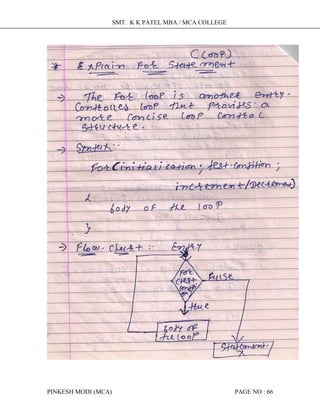 SMT. K K PATEL MBA / MCA COLLEGE
(Loop)
* Explain For Statement
→ The For loop is another entry-
Controlled loop that provides a
more Concise loop Control
Structure.
→ Syntax:-
For(initialization; test-condition;
increment/Decrement)
{
body of the loop
}
→ Flow-Chart :- Entry
For
(test
condi
on)
False
true
body of
the loop
Statement-
x
PINKESH MODI (MCA) PAGE NO : 66